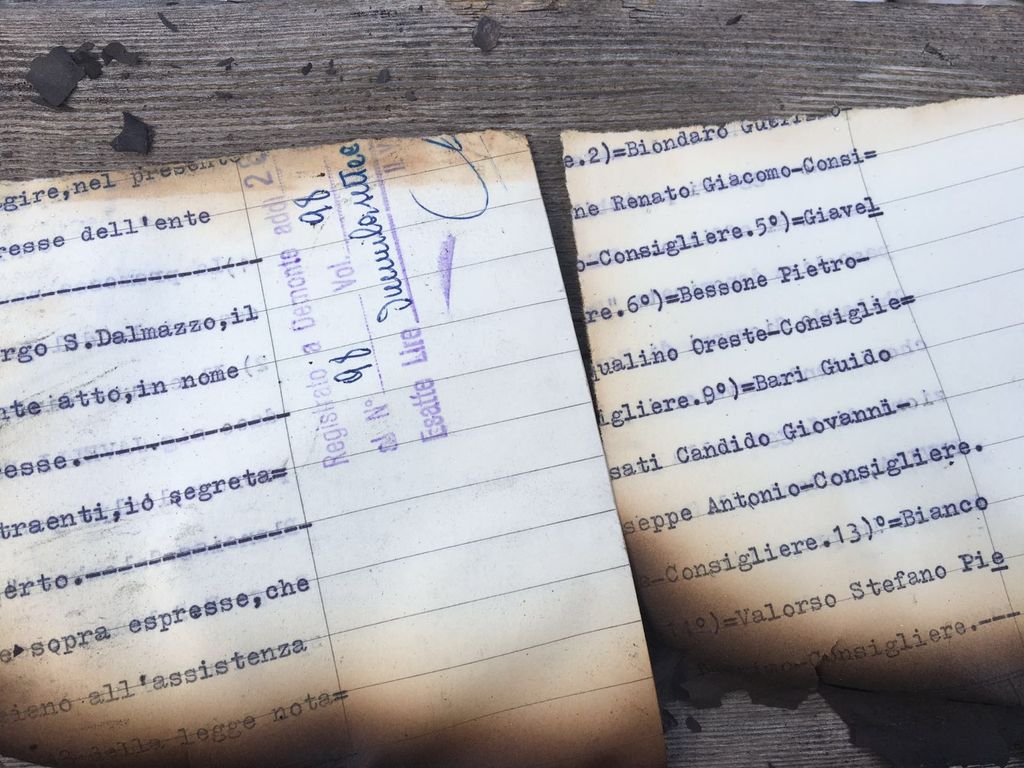 gire,nel presente
resse dell'ente
rgo S.Dalmazzo,il
nte atto,in nome
esse.
traenti,io segreta=
erto.
e sopra espresse,che
all'assistenza
della legge nota=
Registrato a Demonte addì 2
al N° 98 Vol. 98
Esatte Lire
e.2)=Biondaro
ne Renato Giacomo-Consi=
-Consigliere.5º)=Giavel
re.6º)=Bessone Pietro-
ualino Oreste-Consiglie=
igliere.9º)=Bari Guido
sati Candido Giovanni-
seppe Antonio-Consigliere.
-Consigliere.13)º=Bianco
14º)=Valorso Stefano Pie
-Consigliere.---